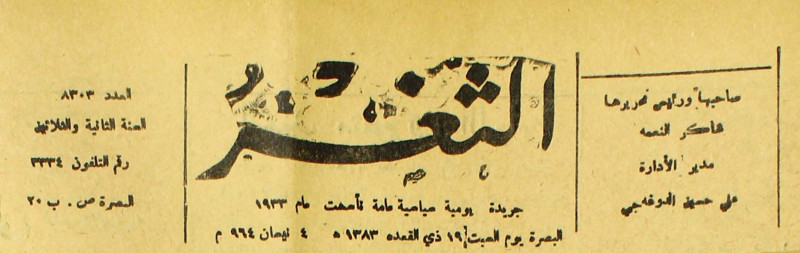 صاحبها ورئيس تحريرها
شاكر النعمه
مدير الأدارة
علي حسين
الثغر
جريدة يومية سياسية عامة تأسست عام ١٩٣٣
البصرة يوم السبت ١٩ ذي القعده ١٣٨٣ ه ٤ نيسان ٩٦٤ م
العدد ٨٣٠٣
السنة الثانية والثلاثون
رقم التلفون ٣٣٣٤
البصرة ص . ب ٢٠